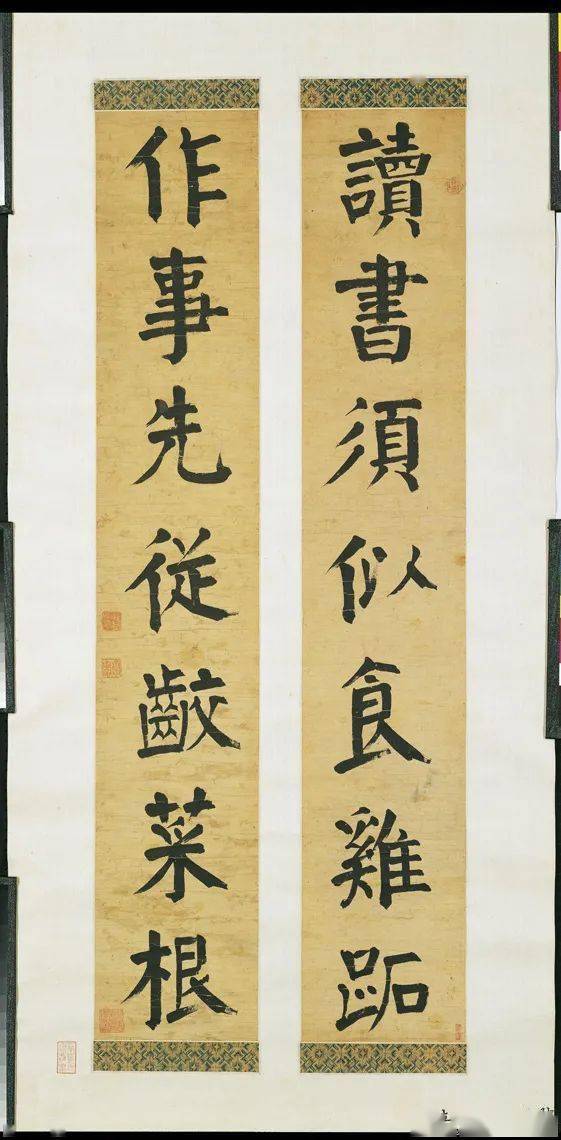 讀書須似食雞跖
作事先從齩菜根